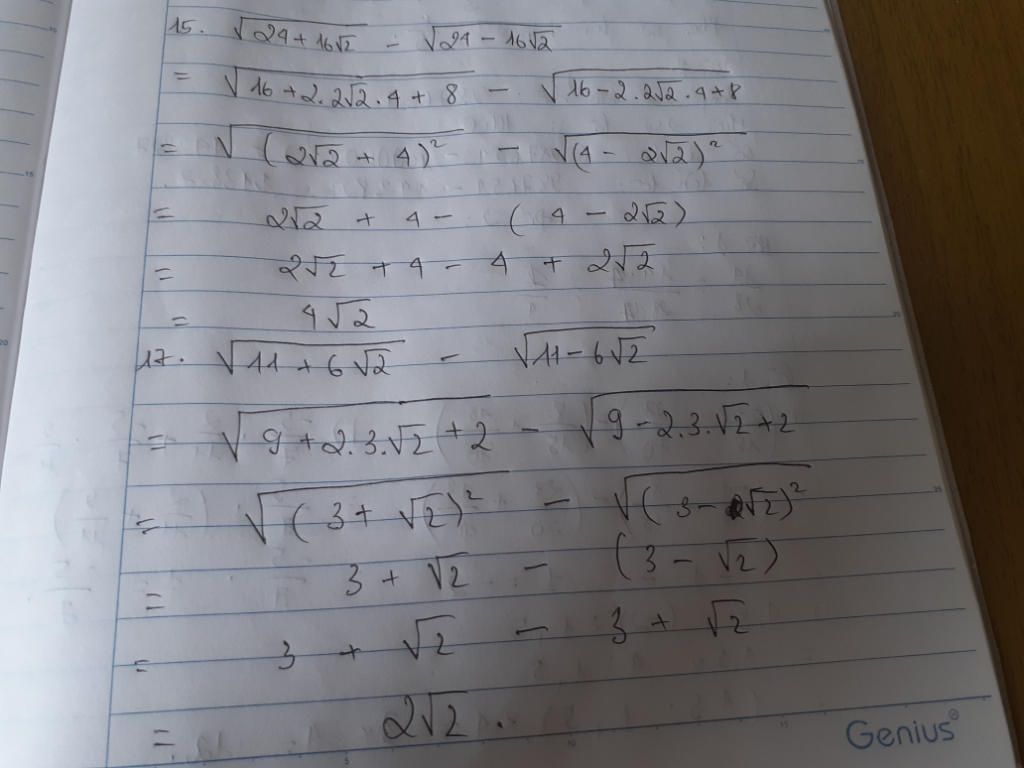 15. √(24 + 16√2) - √(24 - 16√2)
= √(16 + 2.2√2.4 + 8) - √(16 - 2.2√2.4 + 8)
= √((2√2 + 4)²) - √((4 - 2√2)²)
= 2√2 + 4 - (4 - 2√2)
= 2√2 + 4 - 4 + 2√2
= 4√2
17. √(11 + 6√2) - √(11 - 6√2)
= √(9 + 2.3.√2 + 2) - √(9 - 2.3.√2 + 2)
= √((3 + √2)²) - √((3 - √2)²)
= 3 + √2 - (3 - √2)
= 3 + √2 - 3 + √2
= 2√2.
Genius